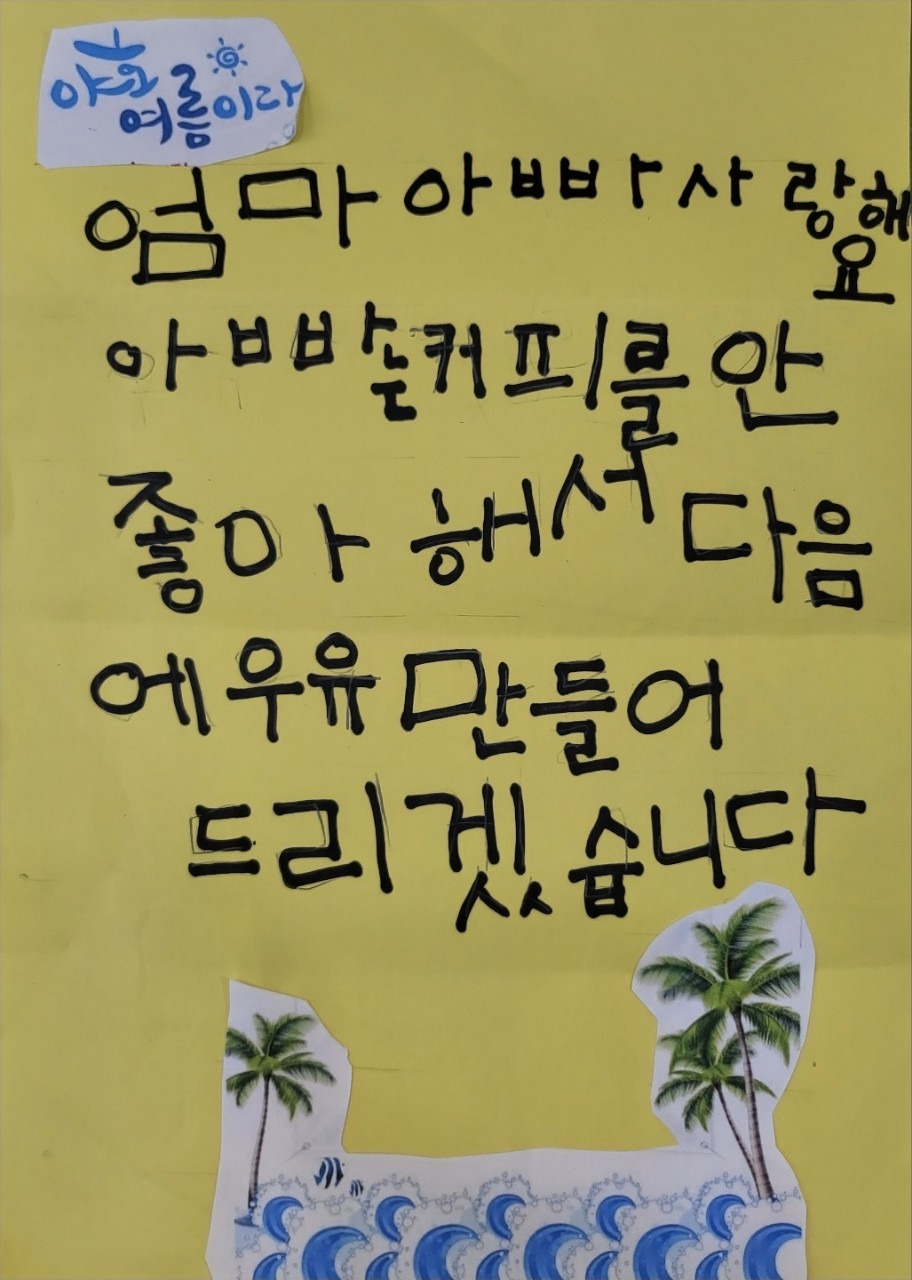 야호
여름이다
엄마아빠사랑해
요
아빠는커피를안
좋아해서다음
에우유만들어
드리겠습니다